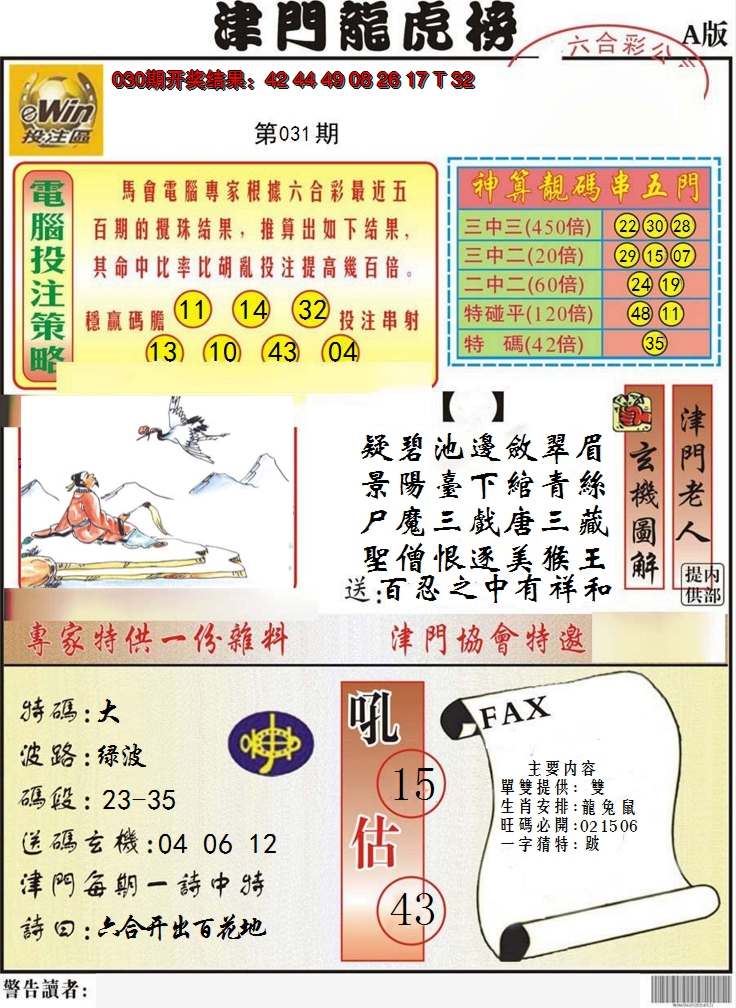 津門龍虎榜
A版
六合彩公司
030期开奖结果：42 44 49 08 26 17 T 32
eWin
投注區
第031期
電腦投注策略
馬會電腦專家根據六合彩最近五
百期的攪珠结果，推算出如下结果，
其命中比率比胡亂投注提高幾百倍。
穩赢碼膽 11 14 32 投注串射
13 10 43 04
神算靚碼串五門
三中三(450倍) 22 30 28
三中二(20倍) 29 15 07
二中二(60倍) 24 19
特碰平(120倍) 48 11
特 碼(42倍) 35
【 】
疑碧池邊斂翠眉
景陽臺下綰青絲
尸魔三戲唐三藏
聖僧恨逐美猴王
送：百忍之中有祥和
玄機圖解
津門老人
内部提供
專家特供一份雜料
津門協會特邀
特碼：大
波路：绿波
碼段：23-35
送碼玄機：04 06 12
津門每期一詩中特
詩曰：六合开出百花地
吼
15
估
43
FAX
主要内容
單雙提供：雙
生肖安排：龍兔鼠
旺碼必開：021506
一字猜特：跛
警告讀者：